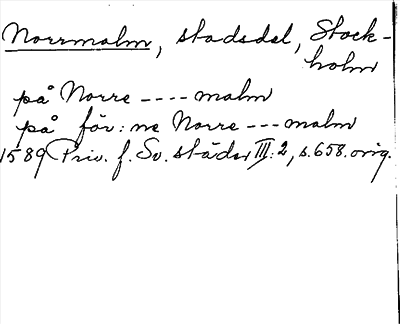 Norrmalm, stadsdel, Stock-
holm
på Norre ---- malm
på för: ne Norre --- malm
1589 Priv. f. Sv. städer III: 2, s. 658. orig.